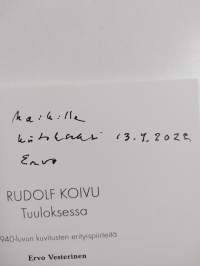 Maikille
kiitokseksi 13.9.2022
Ervo
RUDOLF KOIVU
Tuuloksessa
940-luvun kuvitusten erityispiirteitä
Ervo Vesterinen